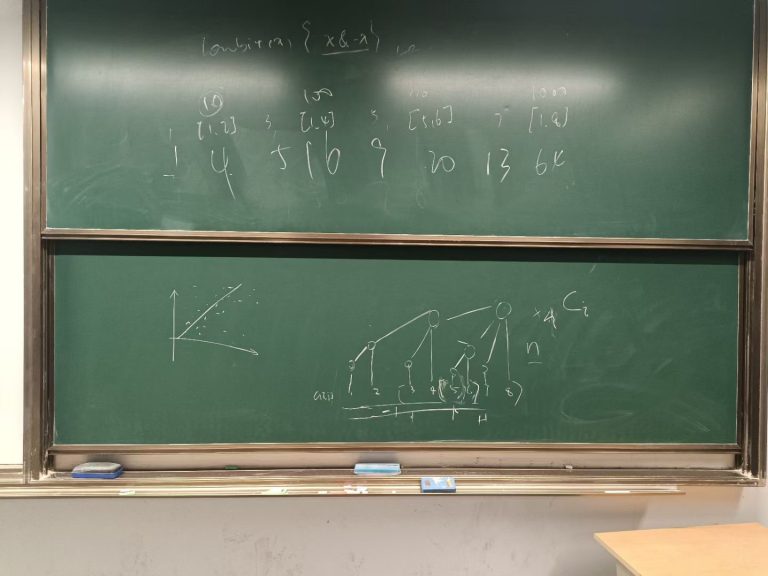 lowbit(x) { x&-x }
10 100 110 1000
1 [1,2] 3, [1,4] 5, [5,6] 7 [1,8]
1 4 5 16 9 20 13 64
C i
n
a[i] 1 2 3 4 5 6 7 8